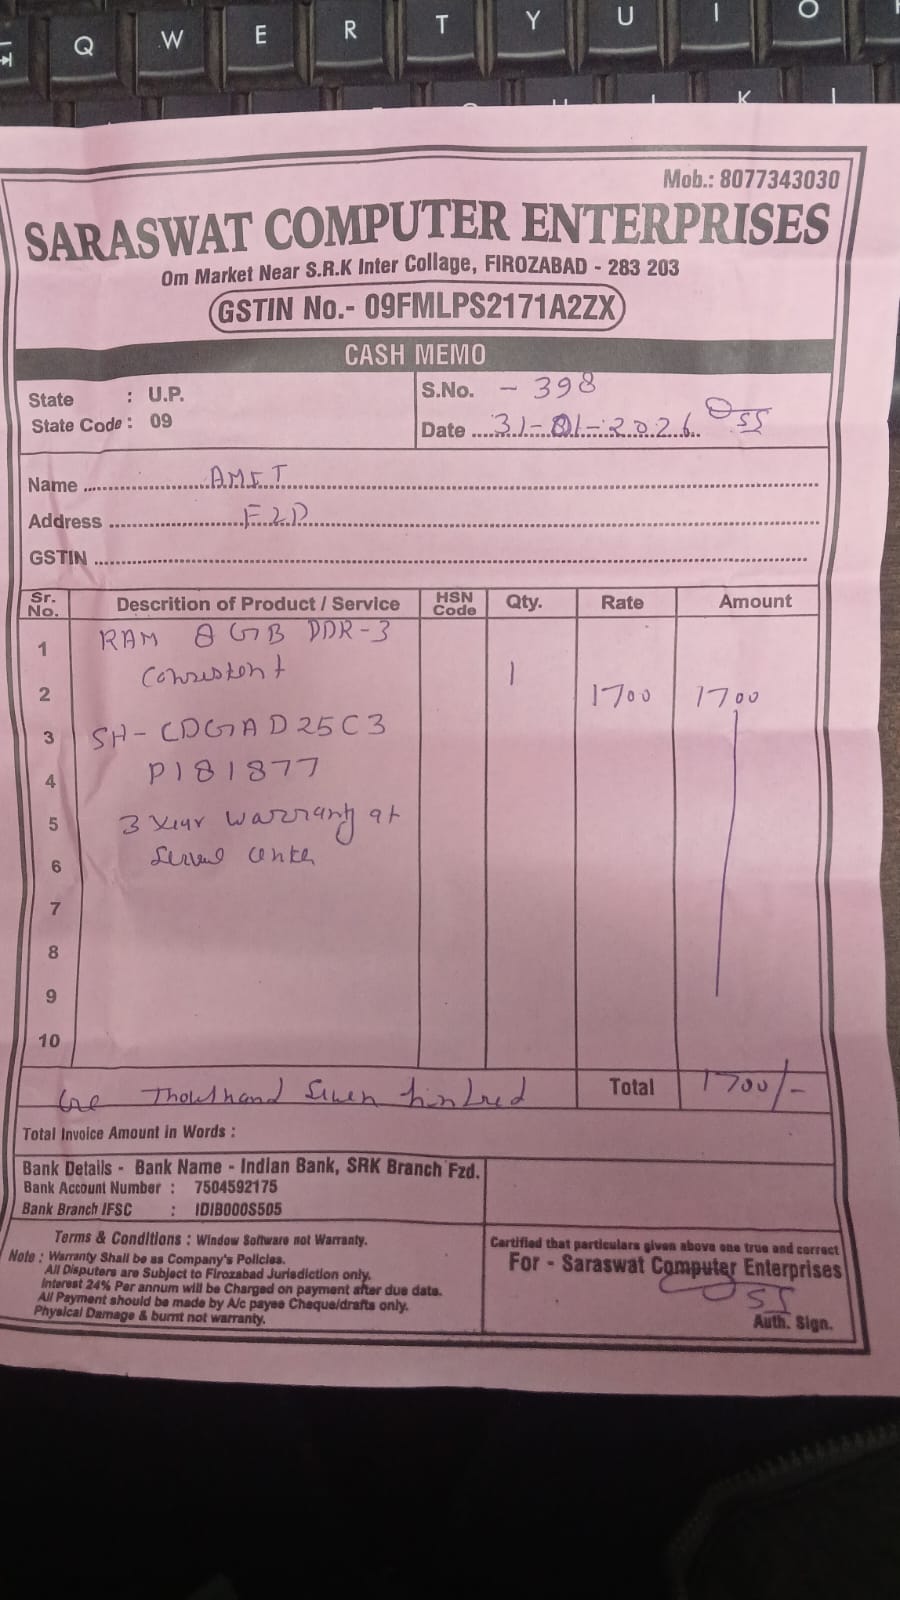 Q W E R T Y U I O
K
Mob.: 8077343030
SARASWAT COMPUTER ENTERPRISES
Om Market Near S.R.K Inter Collage, FIROZABAD - 283 203
GSTIN No.- 09FMLPS2171A2ZX
CASH MEMO
State : U.P.
State Code : 09
S.No. - 398
Date 31-01-2026
Name AMIT
Address FZD
GSTIN
Sr. No. Descrition of Product / Service HSN Code Qty. Rate Amount
1 RAM 8 GB DDR-3
Consistent 1
2 1700 1700
3 SH-CDGAD25C3
4 P181877
5 3 Year warranty at
6 center
7
8
9
10
One Thoushand Seven hundred Total 1700/-
Total Invoice Amount in Words :
Bank Details - Bank Name - Indian Bank, SRK Branch Fzd.
Bank Account Number : 7504592175
Bank Branch IFSC : IDIB000S505
Terms & Conditions : Window Software not Warranty.
Note : Warranty Shall be as Company's Policies.
All Disputers are Subject to Firozabad Jurisdiction only.
Interest 24% Per annum will be Charged on payment after due date.
All Payment should be made by A/c payee Cheque/drafts only.
Physical Damage & burnt not warranty.
Certified that particulars given above one true and correct
For - Saraswat Computer Enterprises
Auth. Sign.